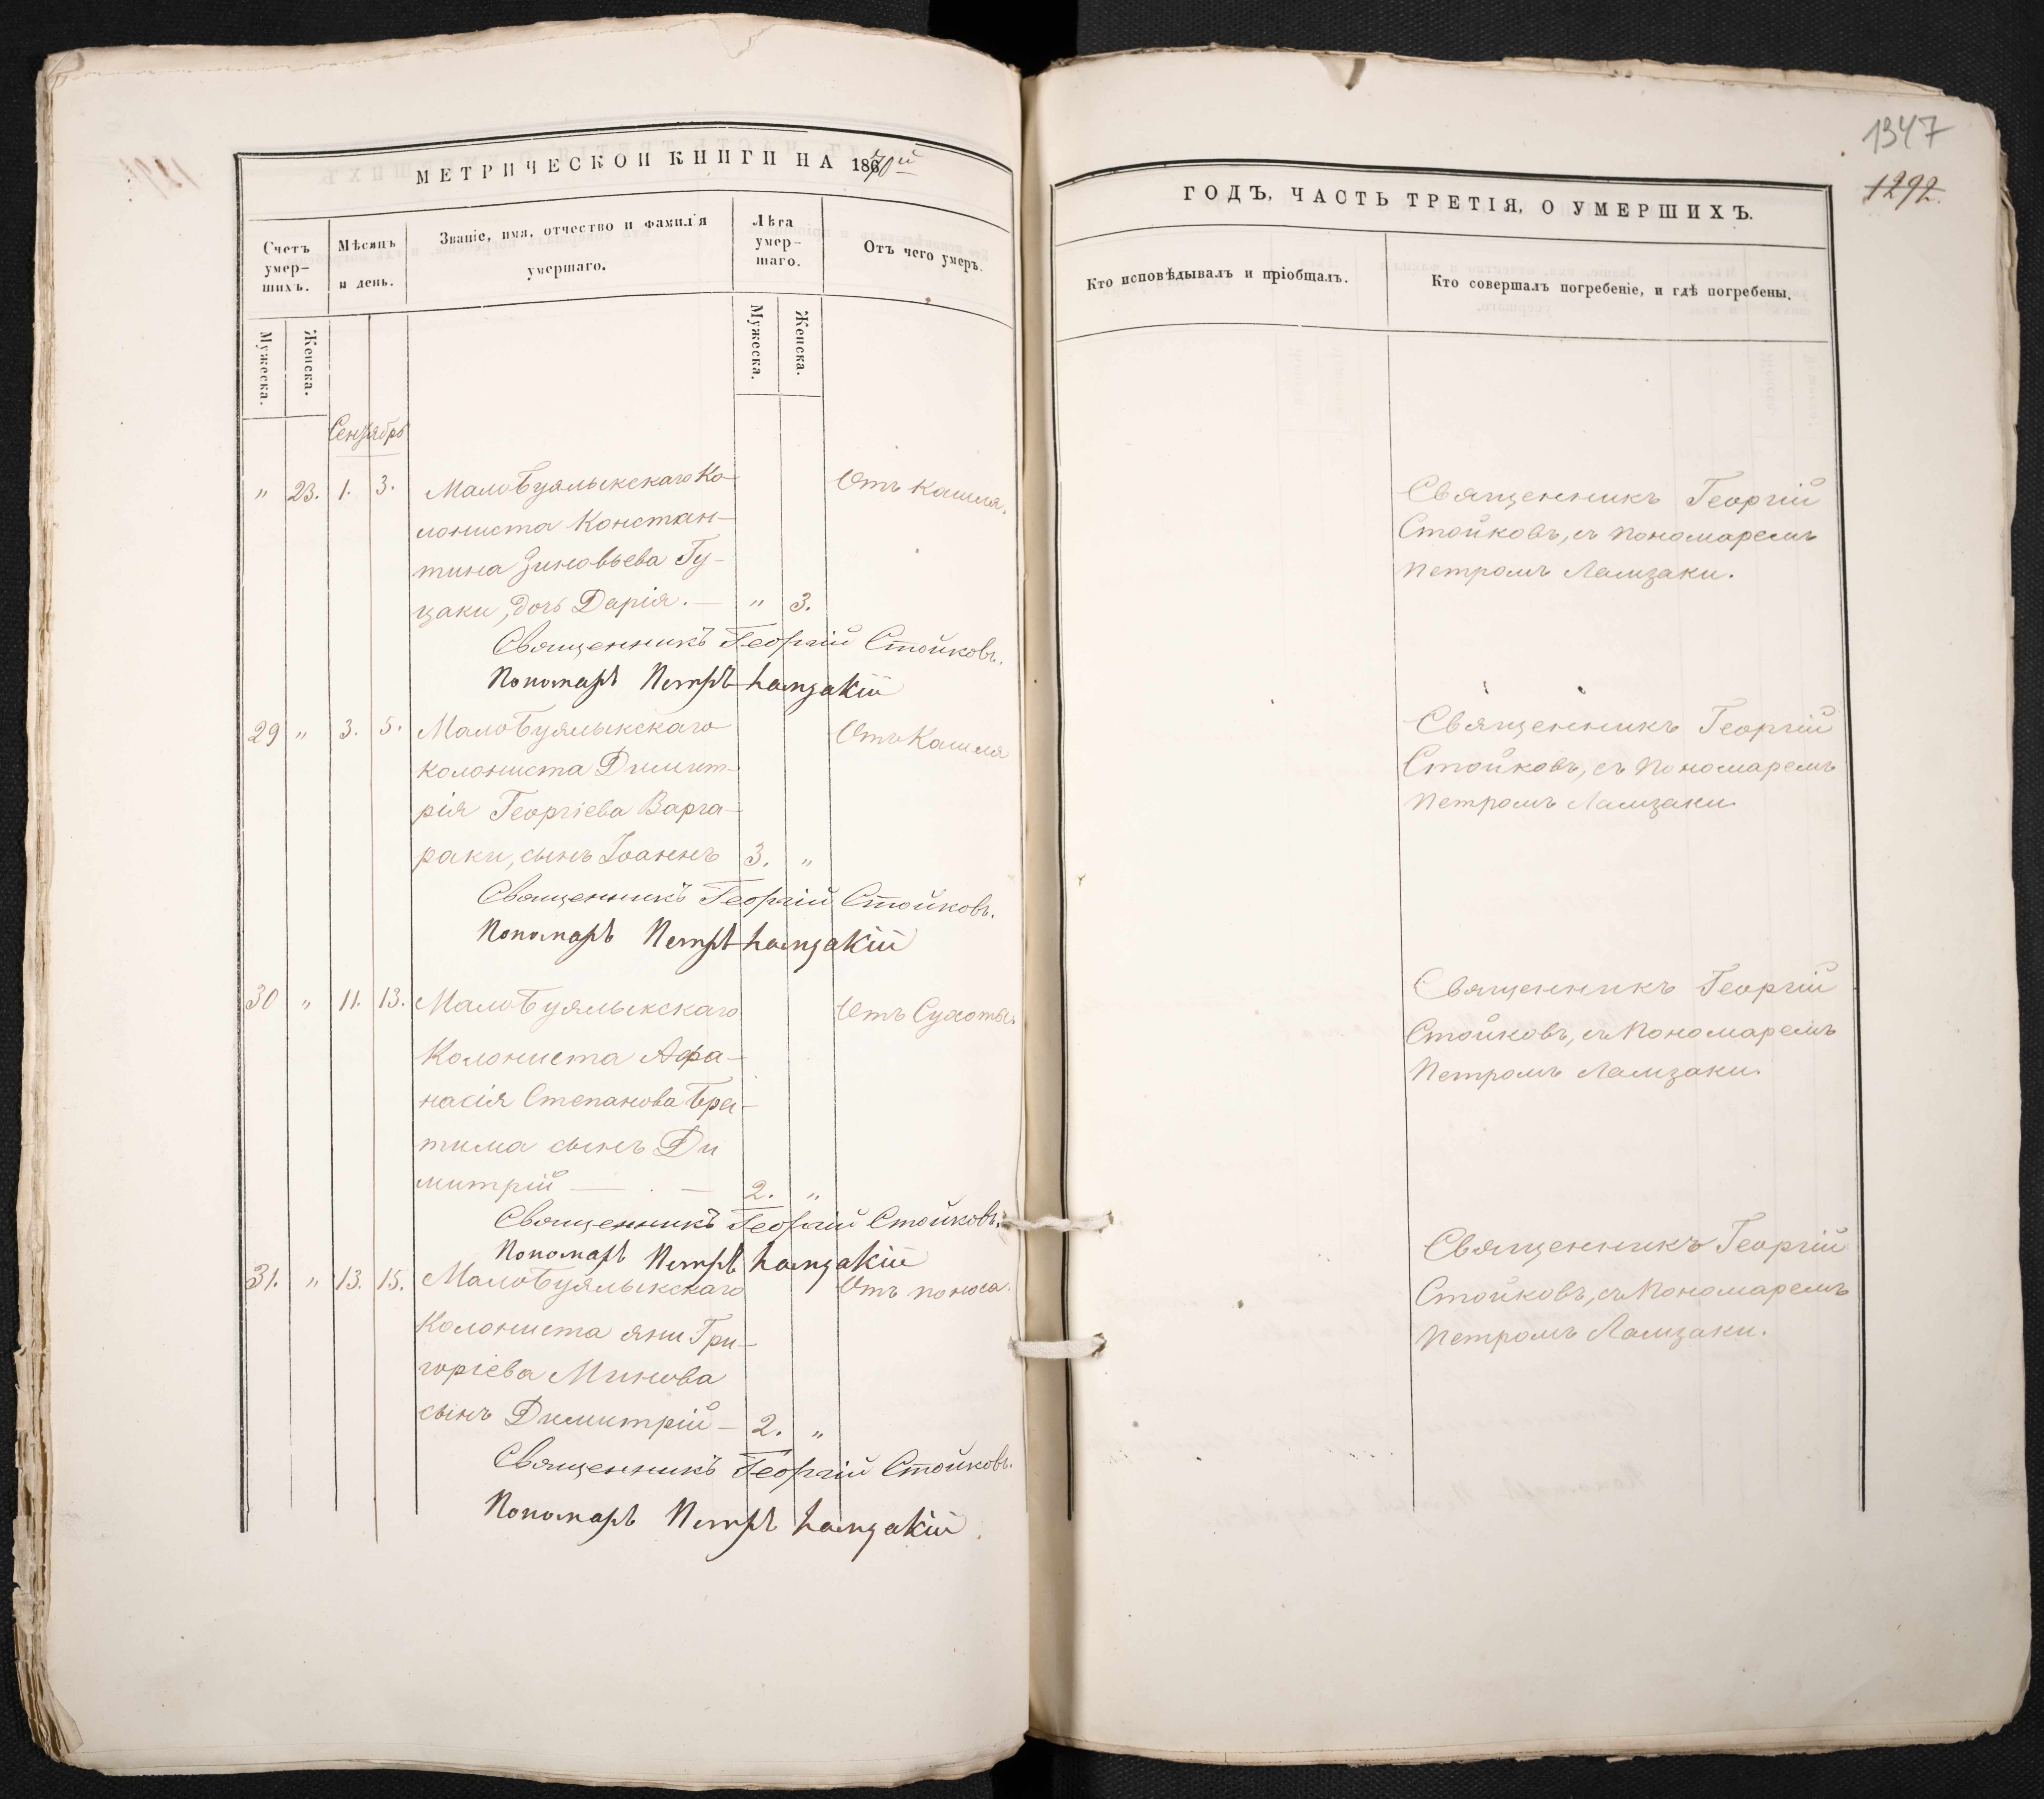 МЕТРИЧЕСКОЙ КНИГИ НА 1870й
Счетъ умер-шихъ.
Мѣсяцъ и день.
Званіе, имя, отчество и фамилія умершаго.
Лѣта умер-шаго.
Отъ чего умеръ.
Мужеска.
Женска.
Мужеска.
Женска.
Сентябрь
" 23. 1. 3. Малобуялыкскаго Ко- Отъ кашля.
лониста Констан-
тина Зиновьева Гу-
цаки, дочь Дарія. — " 3.
Священникъ Георгій Стойковъ.
Пономарь Петръ Ламзакій
29 " 3. 5. Малобуялыкскаго Отъ Кашля
колониста Димит-
рія Георгіева Варга-
раки, сынъ Іоаннъ 3. "
Священникъ Георгій Стойковъ.
Пономарь Петръ Ламзакій
30 " 11. 13. Малобуялыкскаго Отъ Сухоты.
Колониста Афа-
насія Степанова
тима сынъ Ди
митрій — — 2. "
Священникъ Георгій Стойковъ.
Пономарь Петръ Ламзакій
31. " 13. 15. Малобуялыкскаго Отъ поноса.
Колониста Яни Гри-
горіева Минова
сынъ Димитрій — 2. "
Священникъ Георгій Стойковъ.
Пономарь Петръ Ламзакій.
1347
1292.
ГОДЪ, ЧАСТЬ ТРЕТІЯ, О УМЕРШИХЪ.
Кто исповѣдывалъ и пріобщалъ.
Кто совершалъ погребеніе, и гдѣ погребены.
Священникъ Георгій
Стойковъ, съ пономаремъ
Петромъ Ламзаки.
Священникъ Георгій
Стойковъ, съ Пономаремъ
Петромъ Ламзаки.
Священникъ Георгій
Стойковъ, съ Пономаремъ
Петромъ Ламзаки.
Священникъ Георгій
Стойковъ, съ Пономаремъ
Петромъ Ламзаки.